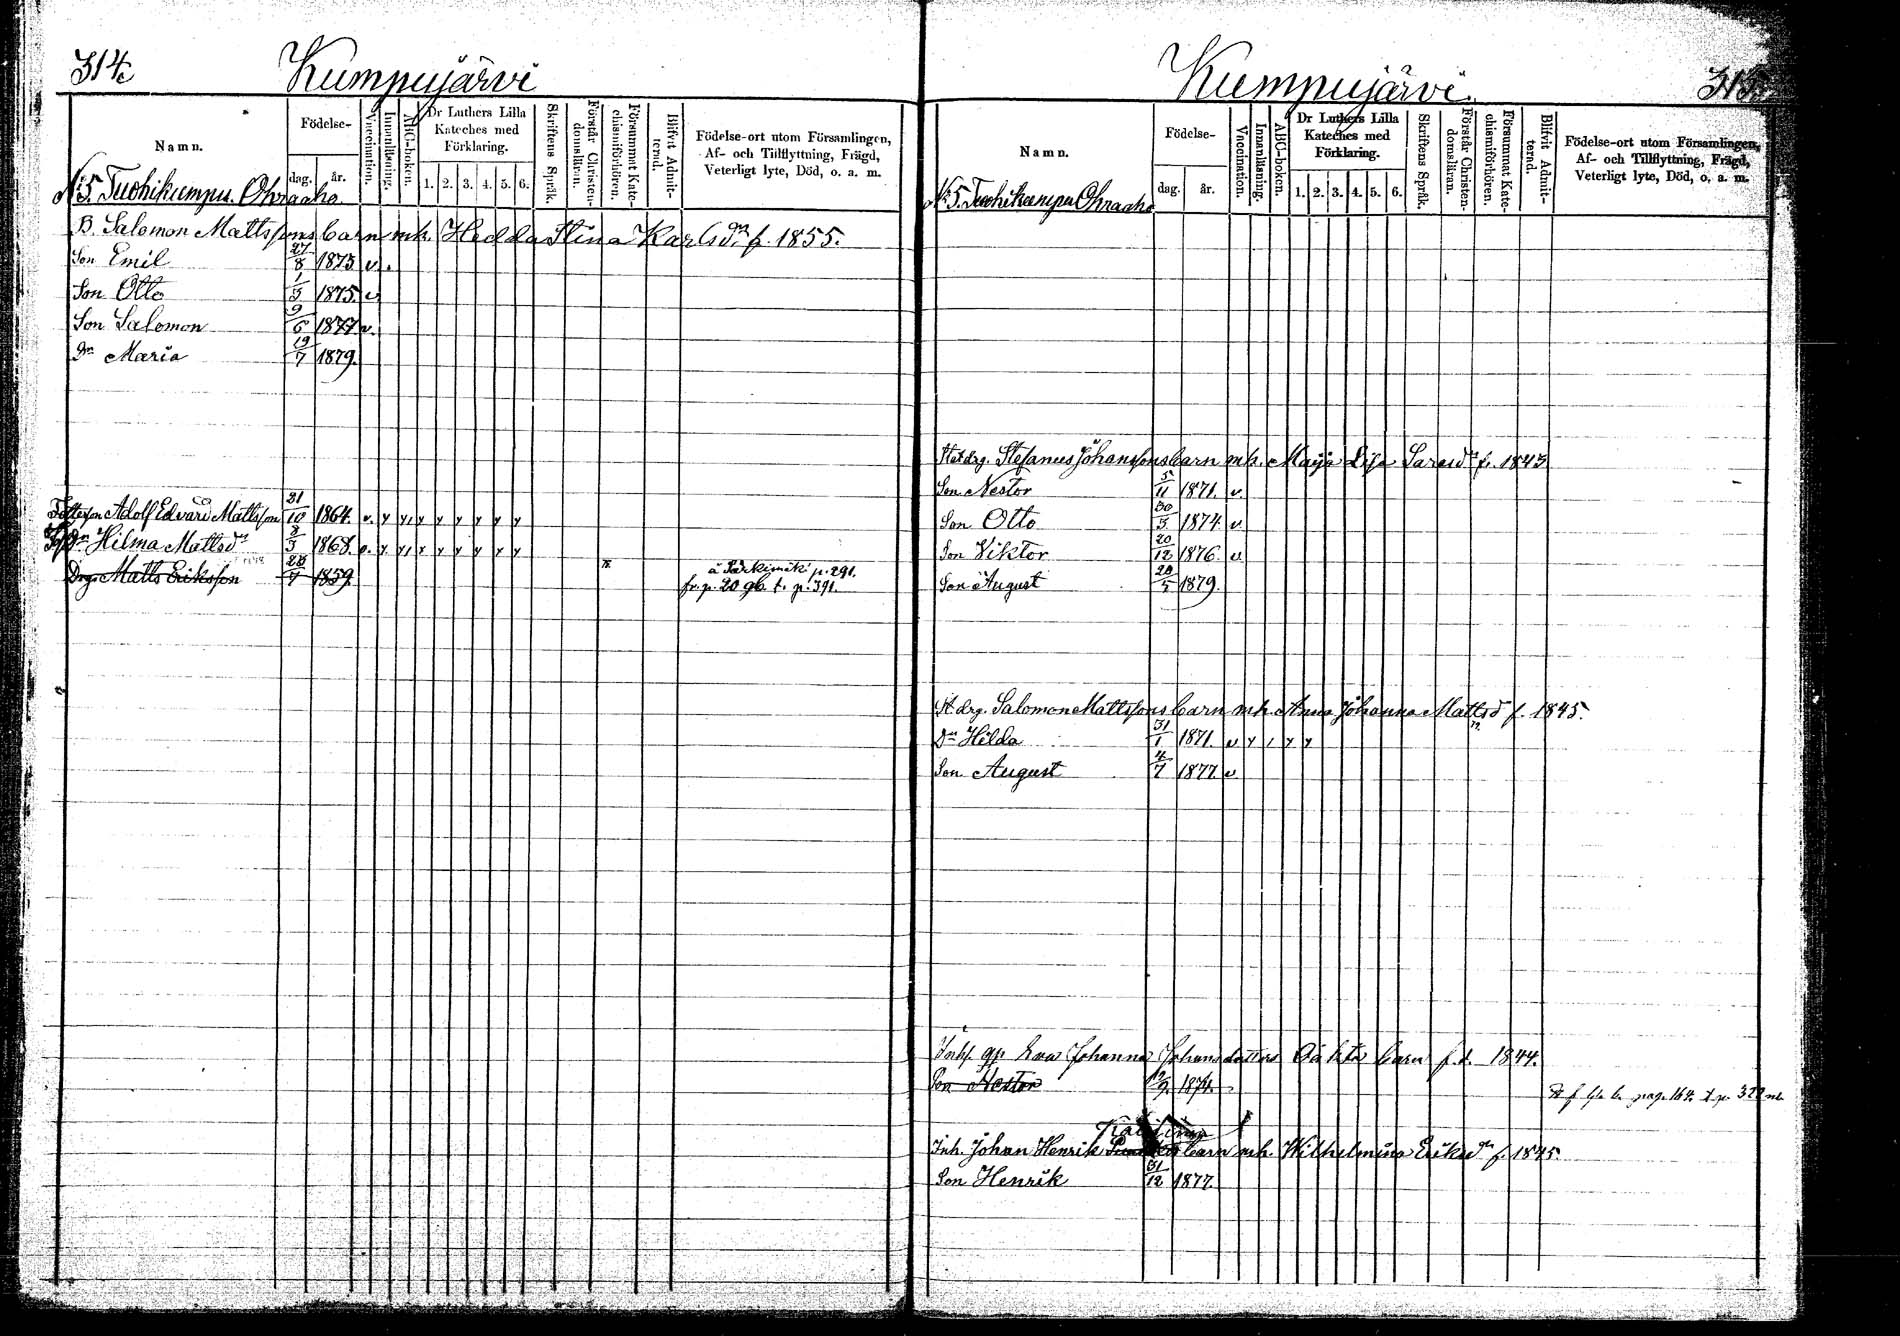 314
Kumpujärvi
Namn.
Födelse-
dag.
år.
Vaccination.
Innanläsning.
ABC-boken.
Dr Luthers Lilla
Kateches med
Förklaring.
1. 2. 3. 4. 5. 6.
Skriftens Språk.
Förstår Christen-
domsläran.
Försummat Kate-
chismiförhören.
Blifvit Admit-
terad.
Födelse-ort utom Församlingen,
Af- och Tillflyttning, Frägd,
Veterligt lyte, Död, o. a. m.
No 5. Tuohikumpu. Ohraaho
B. Salomon Mattssons barn mh. Hedda Stina Karlsdn f. 1855.
Son Emil 27/8 1873 v.
Son Otto 1/3 1875. v
Son Salomon 9/6 1877 v.
Dn Maria 19/7 1879.
Adolf Edvard Mattsson 31/10 1864. v. y y y y y y y y
Hilma Mattsdn 3/3 1868. v. y y y y y y y y
Drg Matts Eriksson 23/7 1859. å Särkimäki p. 291.
fr. p. 20 gb. t. p. 391.
315
Kumpujärvi.
Namn.
Födelse-
dag.
år.
Vaccination.
Innanläsning.
ABC-boken.
Dr Luthers Lilla
Kateches med
Förklaring.
1. 2. 3. 4. 5. 6.
Skriftens Språk.
Förstår Christen-
domsläran.
Försummat Kate-
chismiförhören.
Blifvit Admit-
ternd.
Födelse-ort utom Församlingen,
Af- och Tillflyttning, Frägd,
Veterligt lyte, Död, o. a. m.
No 5. Tuohikumpu Ohraaho
Statdrg. Stefanus Johanssons barn mh. Maija Lisa f. 1843
Son Nestor 5/11 1871. v
Son Otto 30/3 1874. v
Son Viktor 20/12 1876. v
Son August 20/5 1879.
St drg. Salomon Mattssons barn mh. Anna Johanna Mattsdn f. 1845.
Dn Hilda 31/1 1871. v y / y y
Son August 4/7 1877 v
Inh. Eva Johanna Johansdotters oäkta barn f. 1844.
Son Nestor 1871.
Inh. Johan Henrik barn mh. Wilhelmina Eriksdn f. 1845.
Son Henrik 31/12 1877.